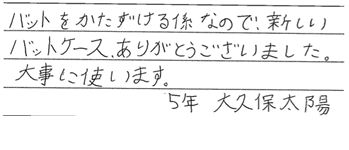 バットをかたずける係なので、新しい
バットケース、ありがとうございました。
大事に使います。
5年 大久保太陽